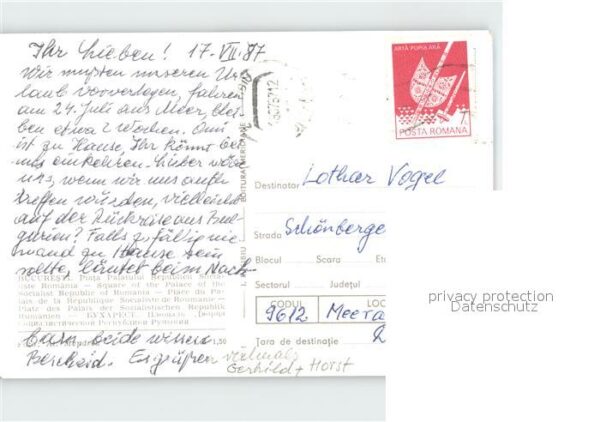 Ihr Lieben! 17. VII. 87
Wir mußten unseren Ur-
laub vorverlegen, fahren
am 24. Juli ans Meer, blei-
ben etwa 2 Wochen. Omi
ist zu Hause, Ihr könnt bei
uns einkehren. Lieber wäre
uns, wenn wir uns auch
treffen würden, vielleicht
auf der Rückreise aus Bul-
garien? Falls zufällig nie-
mand zu Hause sein
sollte, läutet beim Nach-
BUCUREȘTI. Piața Palatului Republicii Socia-
liste România - Square of the Palace of the
Socialist Republic of Romania - Place du Pa-
lais de la République Socialiste de Roumanie -
Platz des Palais der Sozialistischen Republik
Rumänien - БУХАРЕСТ. Площадь Дворца
Социалистической Республики Румынии
barn beide wissen
Bescheid. Es grüßen vielmals
Gerhild + Horst
1,50
EDITURA MERIDIANE
ARTĂ POPULARĂ
POSTA ROMANA
Destinator Lothar Vogel
Strada Schönberger
Blocul Scara Eta
Sectorul Județul
CODUL LOC
9612 Meera
Țara de destinație
privacy protection
Datenschutz